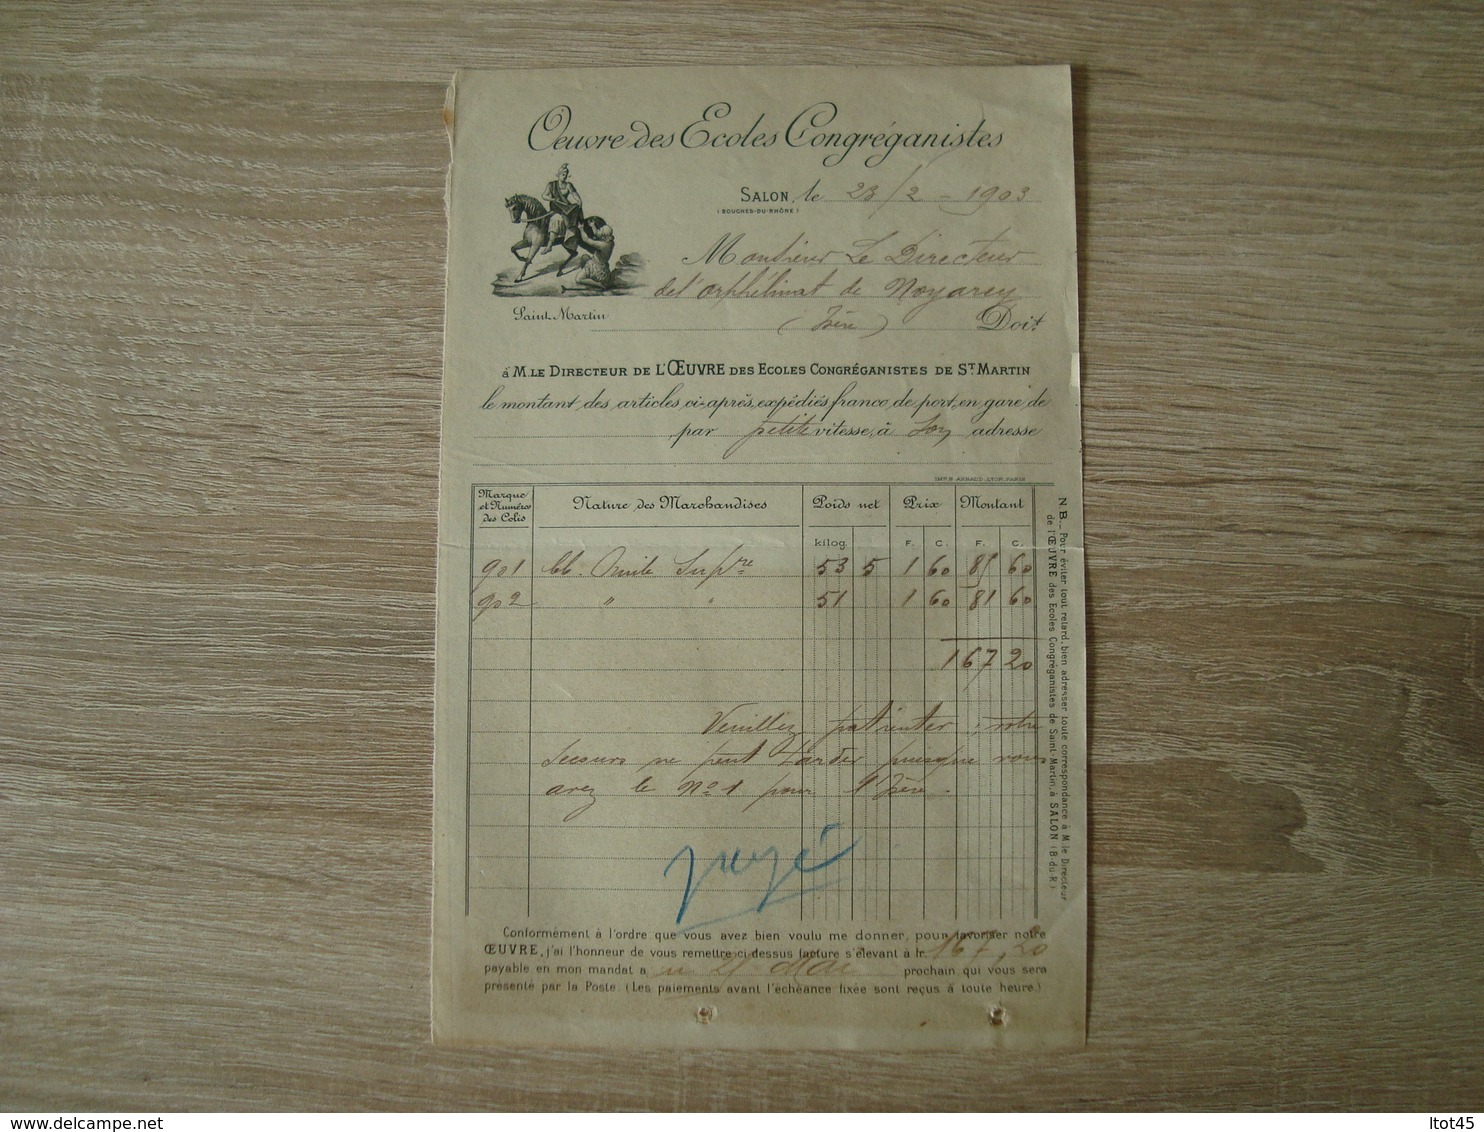 Oeuvre des Ecoles Congréganistes
SALON, le 23/2 - 1903
(BOUCHES-DU-RHÔNE)
Monsieur Le Directeur
de l'orphélinat de Noyarey
(Isère) Doit
Saint Martin
à M. LE DIRECTEUR DE L'ŒUVRE DES ECOLES CONGRÉGANISTES DE ST MARTIN
le montant des articles ci-après, expédiés franco de port, en gare de
par petite vitesse, à son adresse
IMP. B. ARNAUD, LYON-PARIS
Marque et Numéro des Colis Nature des Marchandises Poids net Prix Montant
kilog. F. C. F. C.
901 bb. Huile Supre 53 5 1 60 85 60
902 " " 51 1 60 81 60
167 20
Veuillez patienter, notre
secours ne peut tarder puisque vous
avez le No 1 pour l'Isère.
payé
Conformément à l'ordre que vous avez bien voulu me donner, pour favoriser notre
ŒUVRE, j'ai l'honneur de vous remettre ci-dessus facture s'élevant à fr. 167,20
payable en mon mandat au 21 Mai prochain qui vous sera
présenté par la Poste. (Les paiements avant l'échéance fixée sont reçus à toute heure.)
N.B._ Pour éviter tout retard, bien adresser toute correspondance à M. le Directeur
de l'ŒUVRE des Ecoles Congréganistes de Saint-Martin, à SALON (B-du-R.)
ltot45